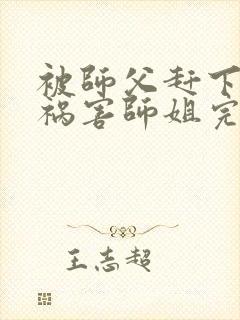 被師父赶下
祸害師姐完
王志超